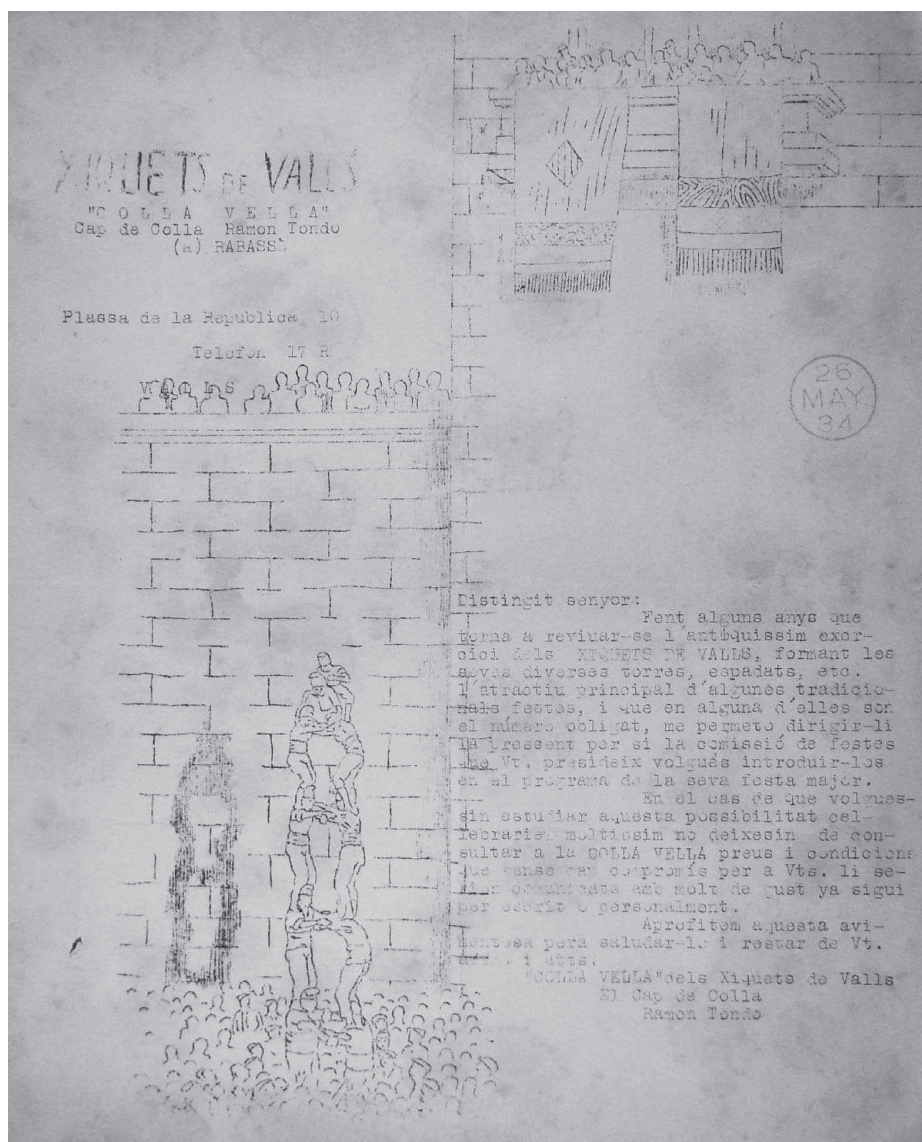 XIQUETS DE VALLS
"COLLA VELLA"
Cap de Colla Ramon Tondo
(a) RABASSÓ
Plassa de la Republica 10
Telefon 17 R
VALLS
26
MAY
34
Distingit senyor:
Fent alguns anys que
torna a reviuar-se l'antiquissim exer-
cici dels XIQUETS DE VALLS, formant les
seves diverses torres, espadats, etc.
l'atractiu principal d'algunes tradicio-
nals festes, i que en alguna d'elles son
el número obligat, me permeto dirigir-li
la pressent per si la comissió de festes
que Vt. presideix volgués introduir-los
en el programa de la seva festa major.
En el cas de que volgues-
sin estudiar aquesta possibilitat cel-
lebraríem moltissim no deixesin de con-
sultar a la COLLA VELLA preus i condicions
que sense cap compromís per a Vts. li se-
rien comunicats amb molt de gust ya sigui
per escrit o personalment.
Aprofitem aquesta avi-
nentesa pera saludar-lo i restar de Vt.
i atts.
"COLLA VELLA" dels Xiquets de Valls
El Cap de Colla
Ramon Tondo